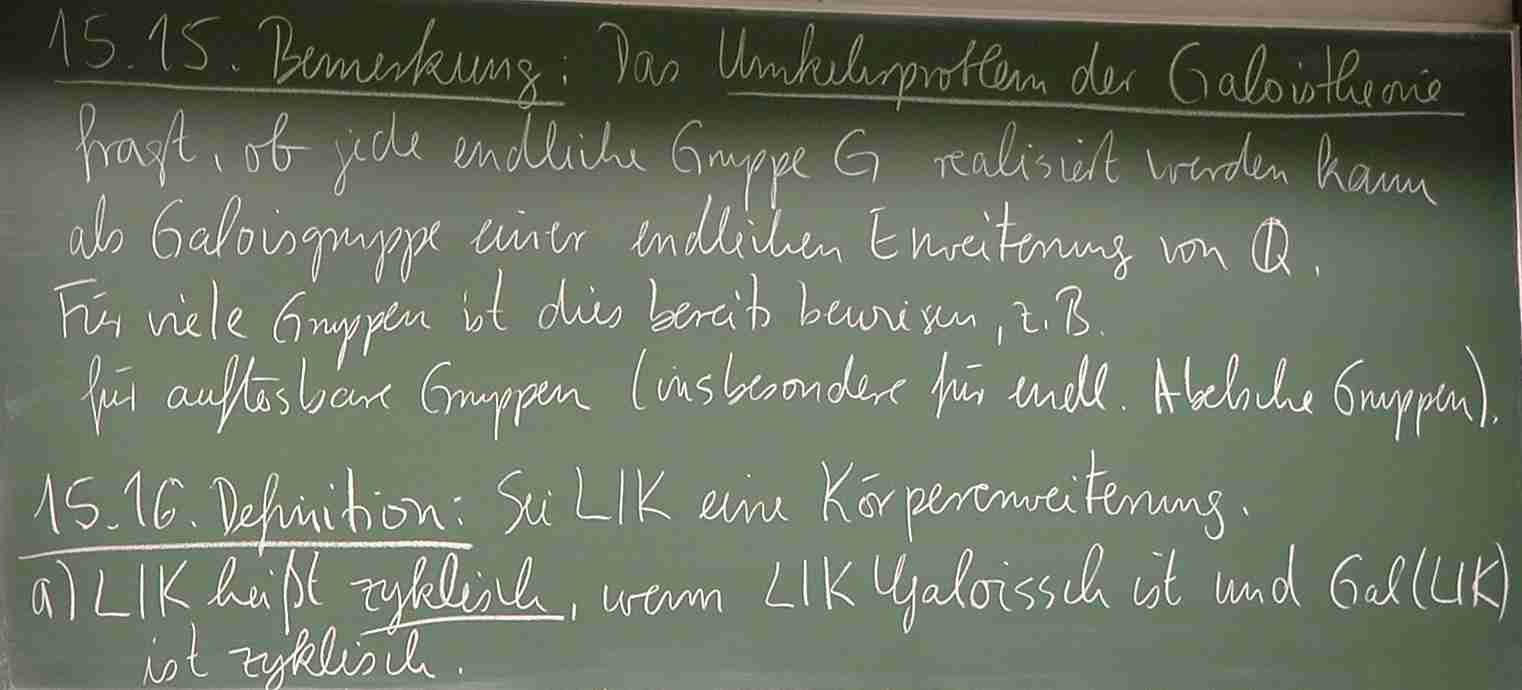 15.15. Bemerkung: Das Umkehrproblem der Galoistheorie
fragt, ob jede endliche Gruppe G realisiert werden kann
als Galoisgruppe einer endlichen Erweiterung von ℚ.
Für viele Gruppen ist dies bereits bewiesen, z.B.
für auflösbare Gruppen (insbesondere für endl. Abelsche Gruppen).
15.16. Definition: Sei L|K eine Körpererweiterung.
a) L|K heißt zyklisch, wenn L|K galoissch ist und Gal(L|K)
ist zyklisch.